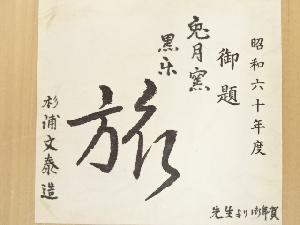 昭和六十年度
御題
兎月窯
黒楽
旅
杉浦文泰造
先生より御年賀